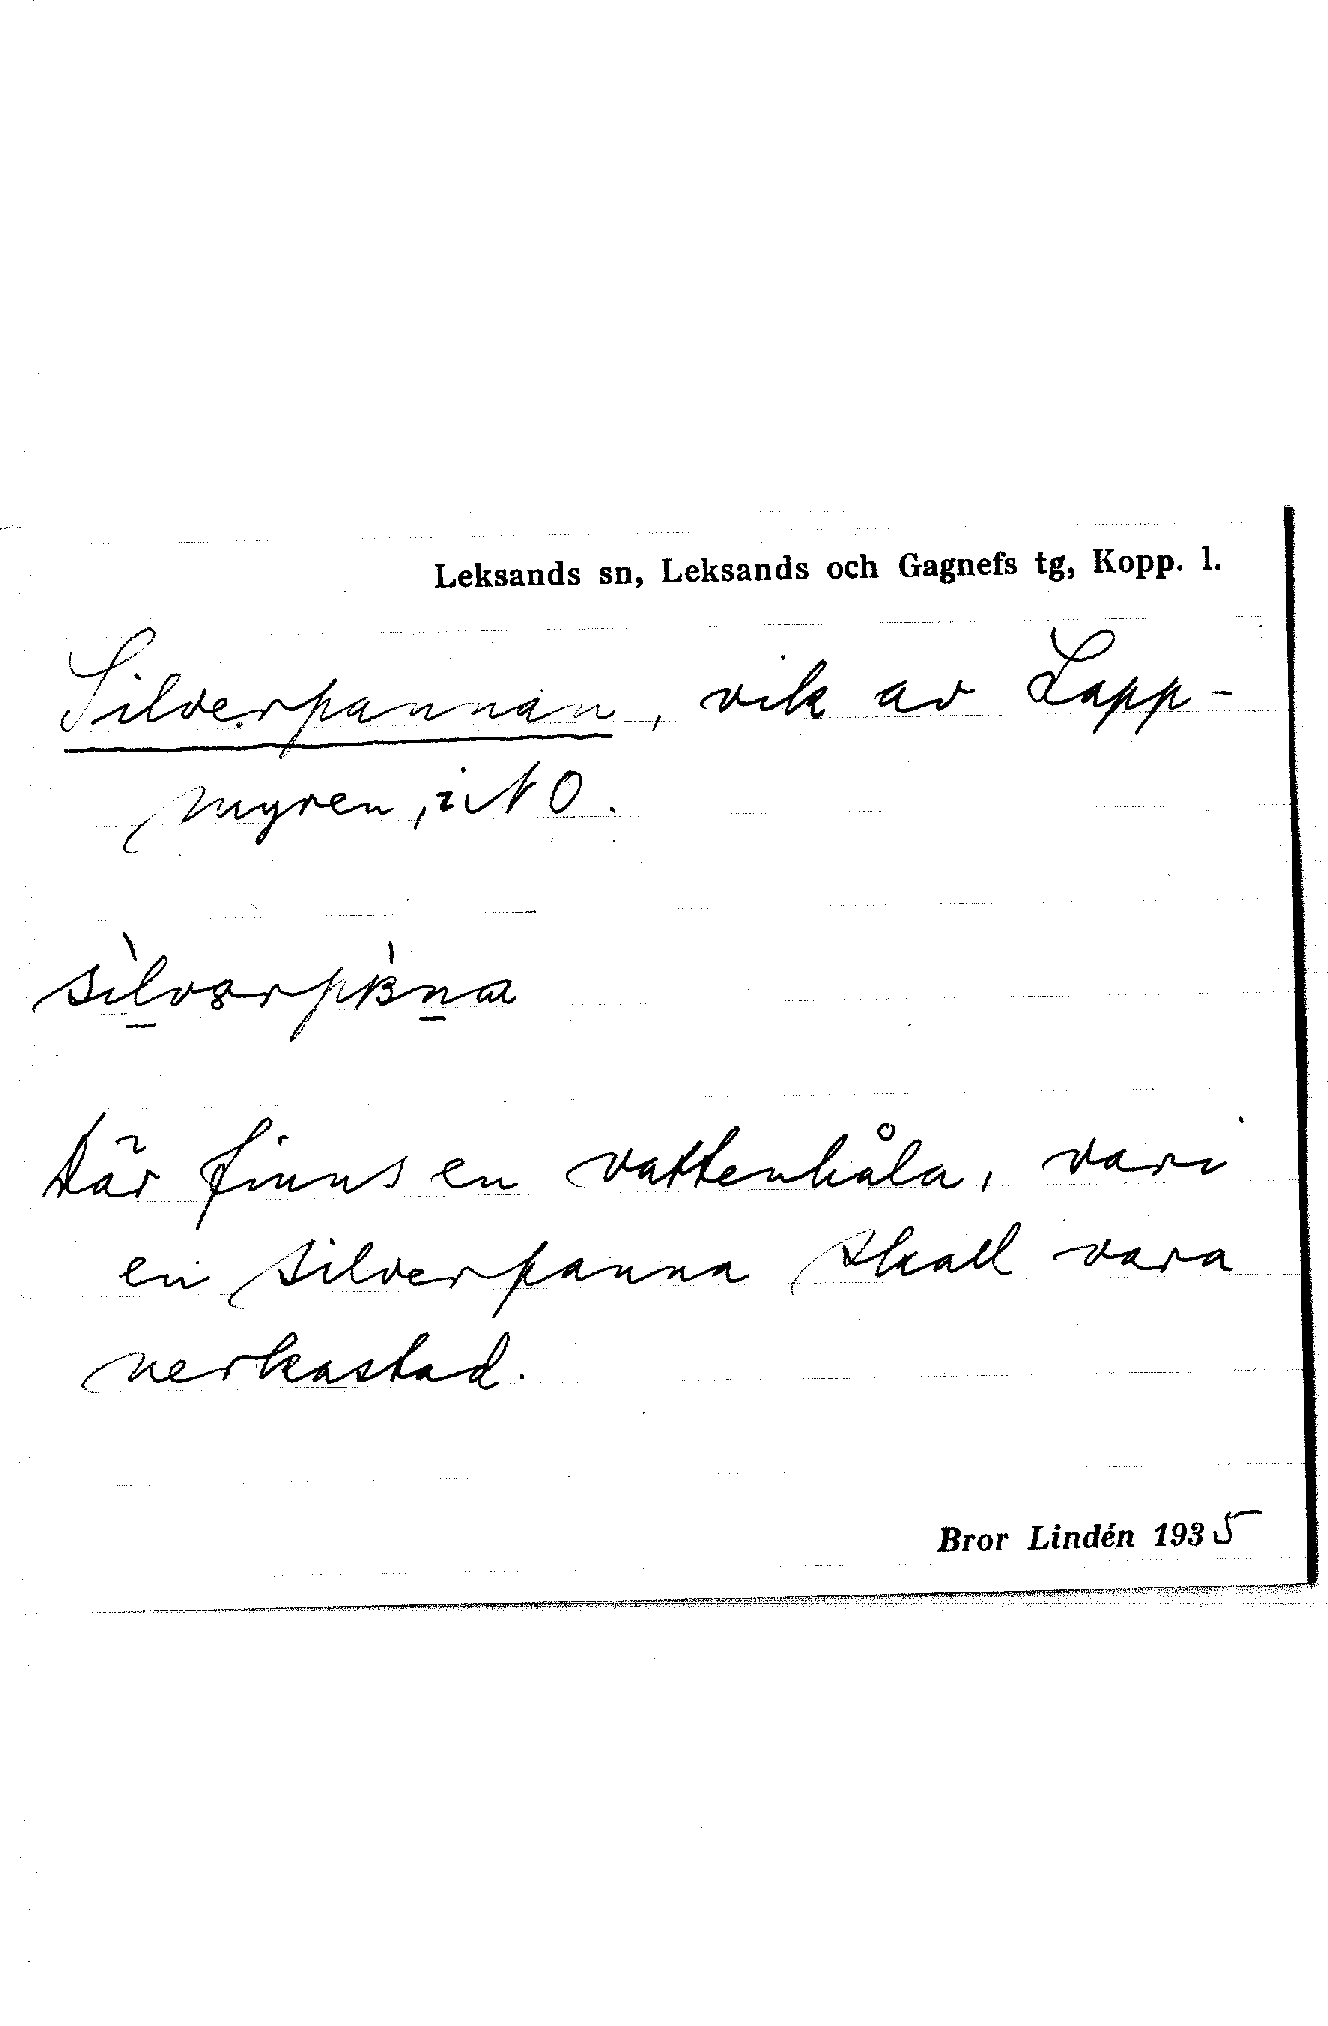 Leksands sn, Leksands och Gagnefs tg, Kopp. l.
Silverpannan, vik av Lapp-
myren, i NO.
Där finns en vattenhåla, vari
en silverpanna skall vara
nerkastad.
Bror Lindén 1935